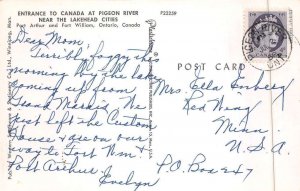 ENTRANCE TO CANADA AT PIGEON RIVER
NEAR THE LAKEHEAD CITIES
Port Arthur and Fort William, Ontario, Canada
P22239
Dear Mom,
Terribly foggy this
morning by the lake
coming up from
Grand Marais. We
just left the Custom
House & are on our
way to Fort Wm &
Port Arthur.
Evelyn
POST CARD
Mrs. Ella Enberg
Red Wing
Minn.
U.S.A.
P.O. Box 247